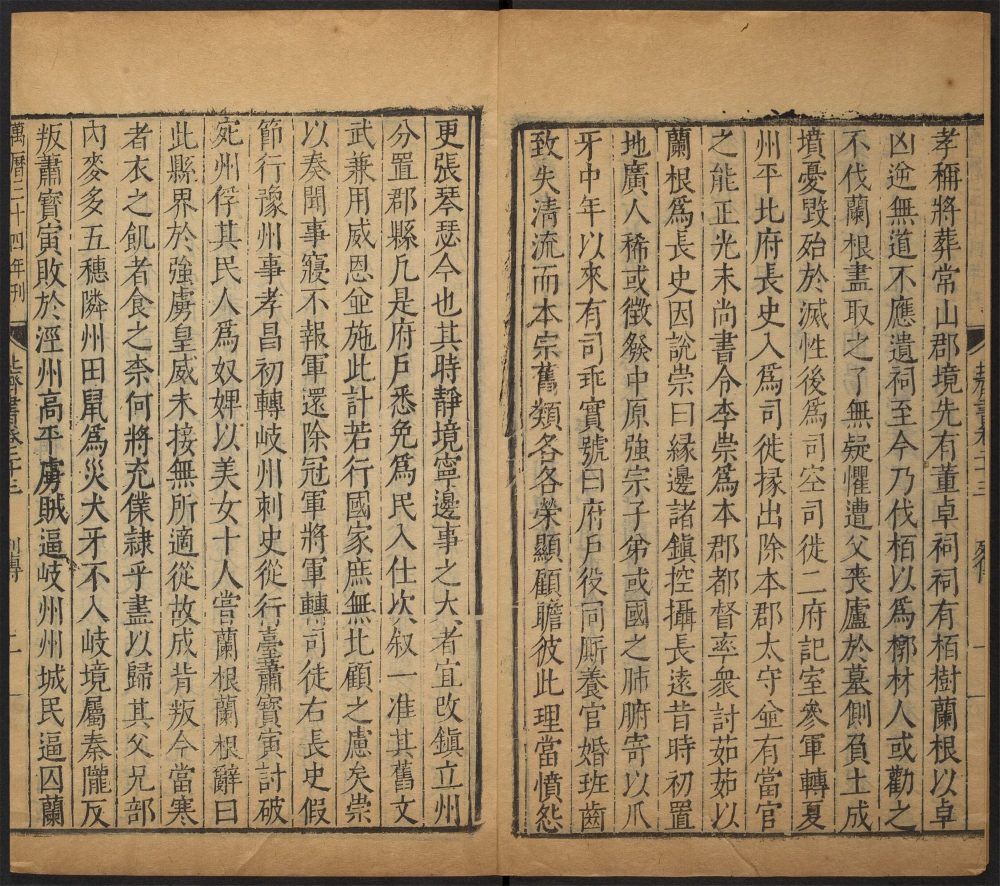 孝稱將葬常山郡境先有董卓祠祠有栢樹蘭根以卓
凶逆無道不應遺祠至今乃伐栢以爲槨材人或勸之
不伐蘭根盡取之了無疑懼遭父喪廬於墓側負土成
墳憂毀殆於滅性後爲司空司徒二府記室參軍轉夏
州平北府長史入爲司徒掾出除本郡太守並有當官
之能正光末尚書令李崇爲本郡都督率衆討茹茹以
蘭根爲長史因說崇曰縁邊諸鎮控攝長遠昔時初置
地廣人稀或徵發中原強宗子弟或國之肺腑寄以爪
牙中年以來有司乖實號曰府戶役同厮養官婚班齒
致失清流而本宗舊類各各榮顯顧瞻彼此理當憤怨
更張琴瑟今也其時靜境寧邊事之大者宜改鎮立州
分置郡縣凡是府戶悉免爲民入仕次叙一准其舊文
武兼用威恩並施此計若行國家庶無北顧之慮矣崇
以奏聞事寢不報軍還除冠軍將軍轉司徒右長史假
節行豫州事孝昌初轉岐州刺史從行臺蕭寳寅討破
宛州俘其民人爲奴婢以美女十人嘗蘭根蘭根辭曰
此縣界於強虜皇威未接無所適從故成背叛今當寒
者衣之飢者食之柰何將充僕隷乎盡以歸其父兄部
內麥多五穗隣州田鼠爲災犬牙不入岐境屬秦隴反
叛蕭寳寅敗於涇州高平虜賊逼岐州州城民逼囚蘭
萬曆二十四年刊
北齊書卷二十三 列傳 二